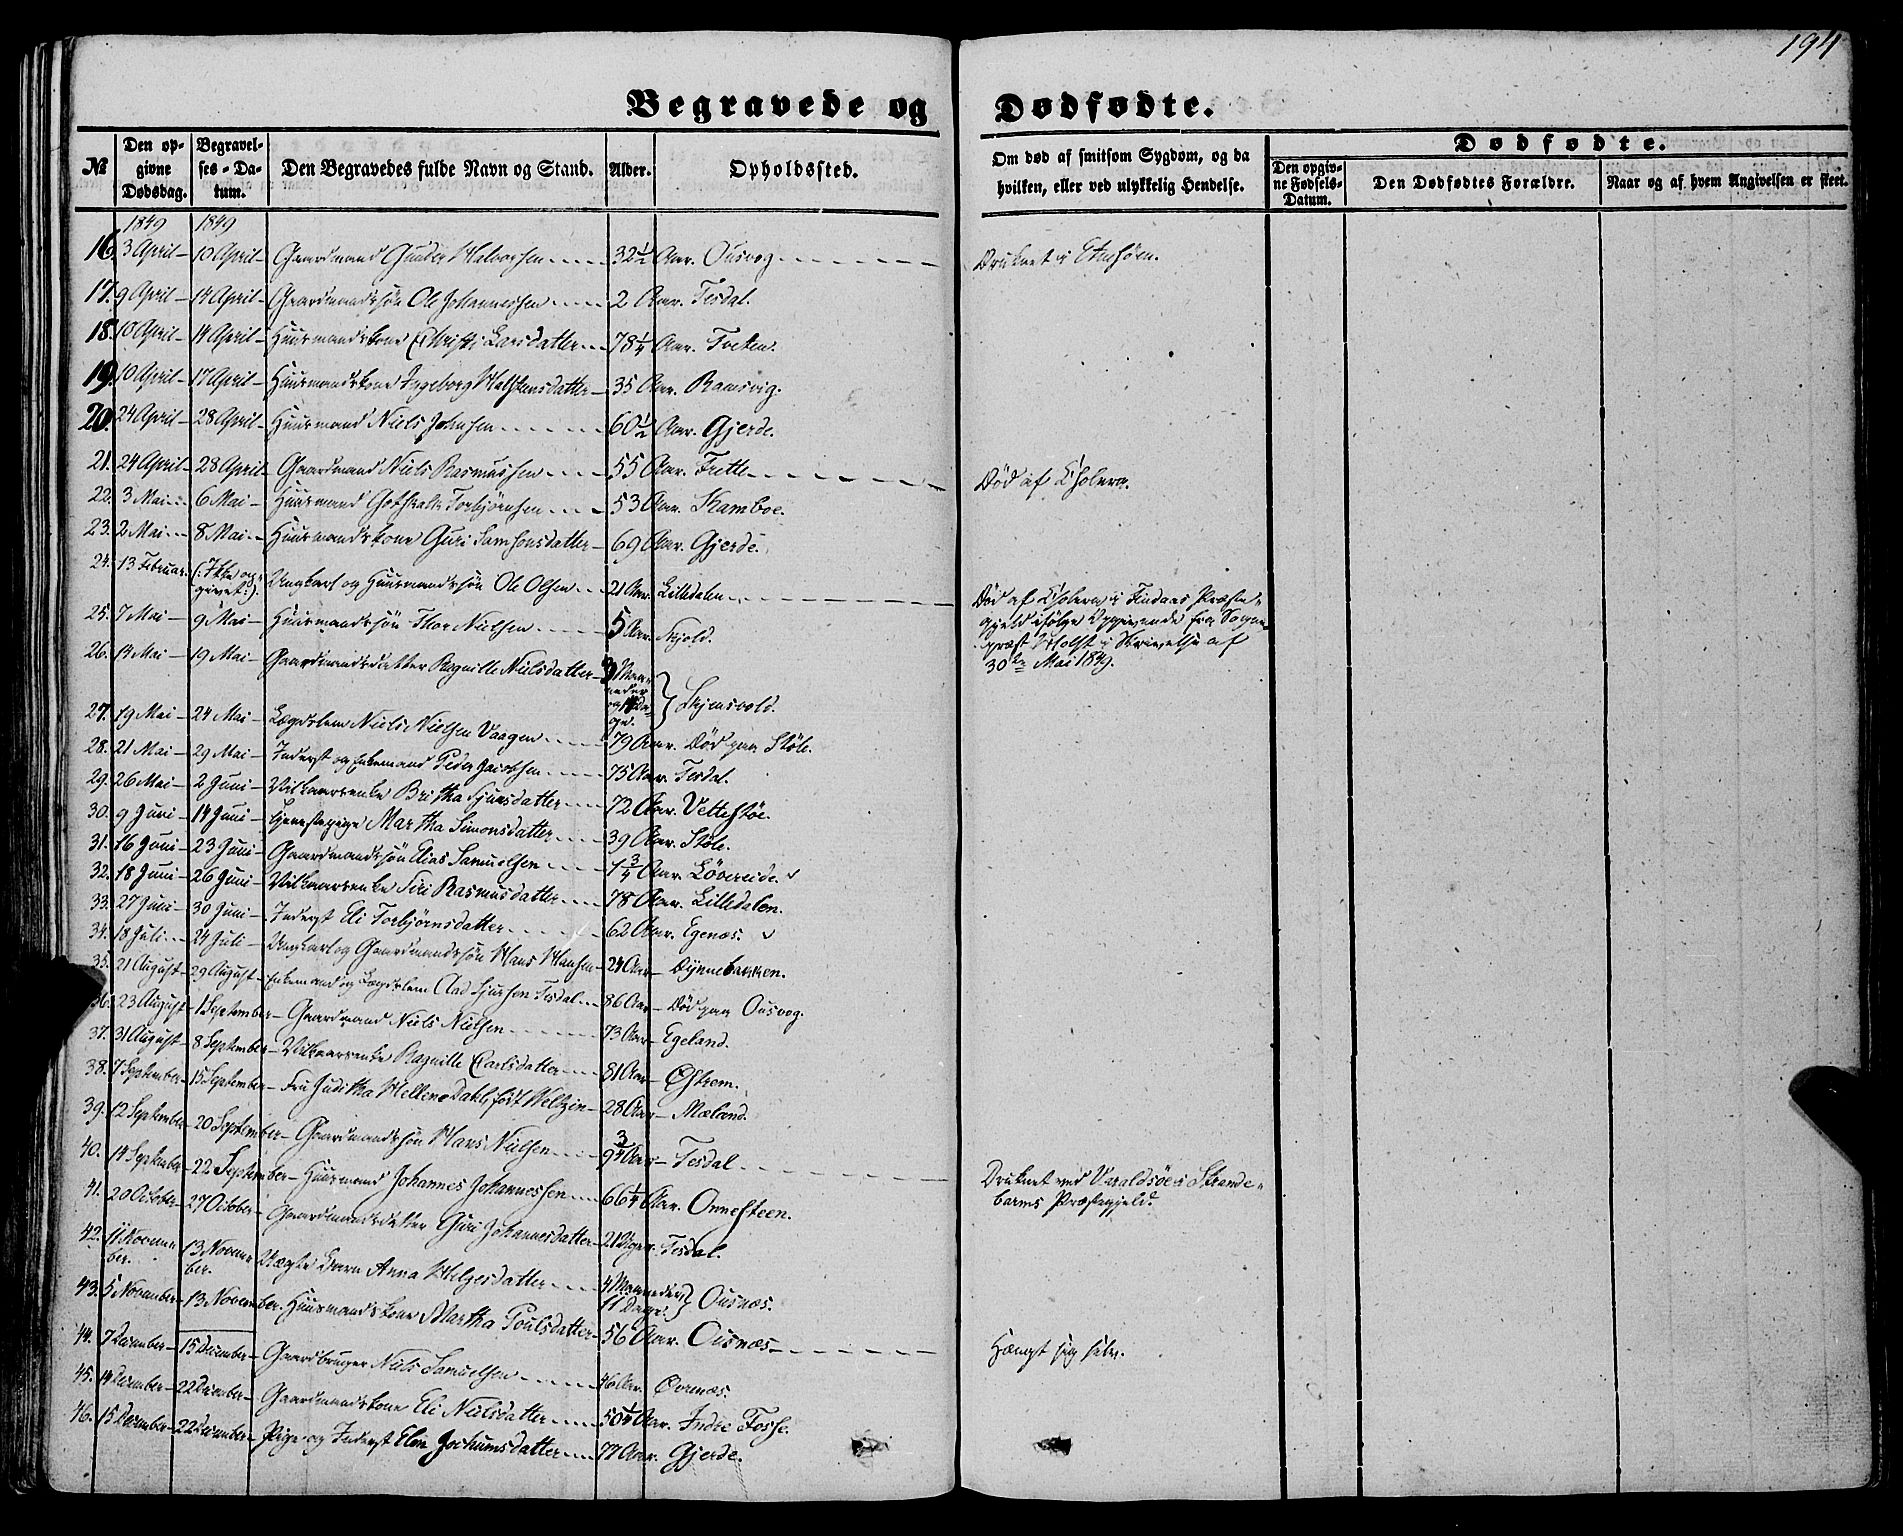 194
Begravede og Dødfødte.
№ Den opgivne Dødsdag. Begravelses-Datum. Den Begravedes fulde Navn og Stand. Alder. Opholdssted. Om død af smitsom Sygdom, og da hvilken, eller ved ulykkelig Hendelse. Dødfødte. Den opgivne Fødsels-Datum. Den Dødfødtes Forældre. Naar og af hvem Angivelsen er skeet.
1849 1849
16. 3 April 10 April Gaardmand Gunder Halvorsen 32½ Aar. Ousvog Druknet i
17. 9 April 14 April Gaardmandssøn Ole Johannessen 2 Aar. Tesdal.
18. 10 April 14 April Huusmandskone Christi Larsdatter 78¼ Aar. Tveten.
19. 10 April 17 April Huusmandskone Ingeborg Halstensdatter 35 Aar. Ramsvig.
20. 24 April 28 April Huusmand Niels Johnsen 60½ Aar. Gjerde.
21. 24 April 28 April Gaardmand Niels Rasmussen 55 Aar. Frette Død af Cholera.
22. 3 Mai 6 Mai Huusmand Gotskalk Torbjørnsen 53 Aar. Kamboe.
23. 2 Mai 8 Mai Huusmandskone Guri Samsonsdatter 69 Aar. Gjerde.
24. 13 Februar (: Ikke opgivet :) Ungkarl og Huusmandssøn Ole Olsen 21 Aar. Lilledalen Død af Cholera i Findaas Præstegjeld ifølge Opgivende fra Sognepræst Holst i Skrivelse af 30te Mai 1849.
25. 7 Mai 9 Mai Huusmandssøn Thor Nielsen 5 Aar. Skjold.
26. 14 Mai 19 Mai Gaardmandsdatter Ragnille Nielsdatter Maaneder og Dage. Skjensvold.
27. 19 Mai 24 Mai Lægdslem Niels Nielsen Vaagen 79 Aar. Død paa Støle.
28. 21 Mai 29 Mai Inderst og Enkemand Peder Jacobsen 75 Aar. Tesdal.
29. 26 Mai 2 Juni Vilkaarsenke Britha Sjursdatter 72 Aar. Vettestøe.
30. 9 Juni 14 Juni Tjenestepige Martha Simonsdatter 39 Aar. Støle.
31. 16 Juni 23 Juni Gaardmandssøn Elias Samuelsen 1¾ Aar. Løvereide.
32. 18 Juni 26 Juni Vilkaarsenke Siri Rasmusdatter 78 Aar. Lilledalen.
33. 27 Juni 30 Juni Inderst Eli Torbjørnsdatter 62 Aar. Egenæs.
34. 18 Juli 24 Juli Ungkarl og Gaardmandssøn Hans Hansen 24 Aar Dynnebakken.
35. 21 August 29 August Enkemand og Lægdslem Aad Sjursen Tesdal 86 Aar Død paa Ousvog.
36. 23 August 1 September Gaardmand Niels Nielsen 73 Aar Egeland.
37. 31 August 8 September Vilkaarsenke Ragnille Carlsdatter 81 Aar Østrem.
38. 7 September 15 September Fru Juditha Hellene Dahl, født Weltzin 28 Aar Mæland.
39. 12 September 20 September Gaardmandssøn Hans Nielsen 9¾ Aar Tesdal
40. 14 September 22 September Huusmand Johannes Johannessen 66¼ Aar. Onnesteen. Druknet ved Varaldsøen i Strandebarms Præstegjeld.
41. 20 October 27 October Gaardmandsdatter Guri Johannesdatter 21 Uger. Tesdal.
42. 11 November. 13 November. Uægte Barn Anna Helgesdatter 4 Maaneder 11 Dage. Ousnæs.
43. 5 November 13 November. Huusmandskone Martha Poulsdatter 56 Aar. Ousnæs Hængt sig selv.
44. 7 December 15 December Gaardbruger Niels Samuelsen 46 Aar. Øvrenæs.
45. 14 December 22 December Gaardmandskone Eli Nielsdatter 50¼ Aar. Indre Fosse.
46. 15 December 22 December Pige og Inderst Elen Jochumsdatter 77 Aar. Gjerde.